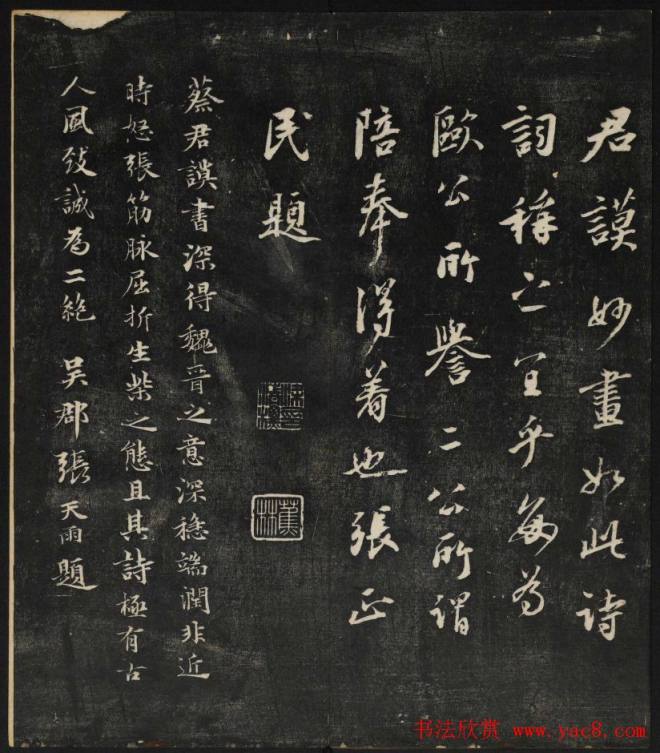 君謨妙畫如此詩
詞稱之宜乎每為
歐公所譽二公所謂
陪奉得着也張正
民題
蔡君謨書深得魏晉之意深穩端潤非近
時怒張筋脉屈折生柴之態且其詩極有古
人風致誠為二絕 吳郡張天雨題
蕉林
书法欣赏 www.yac8.com